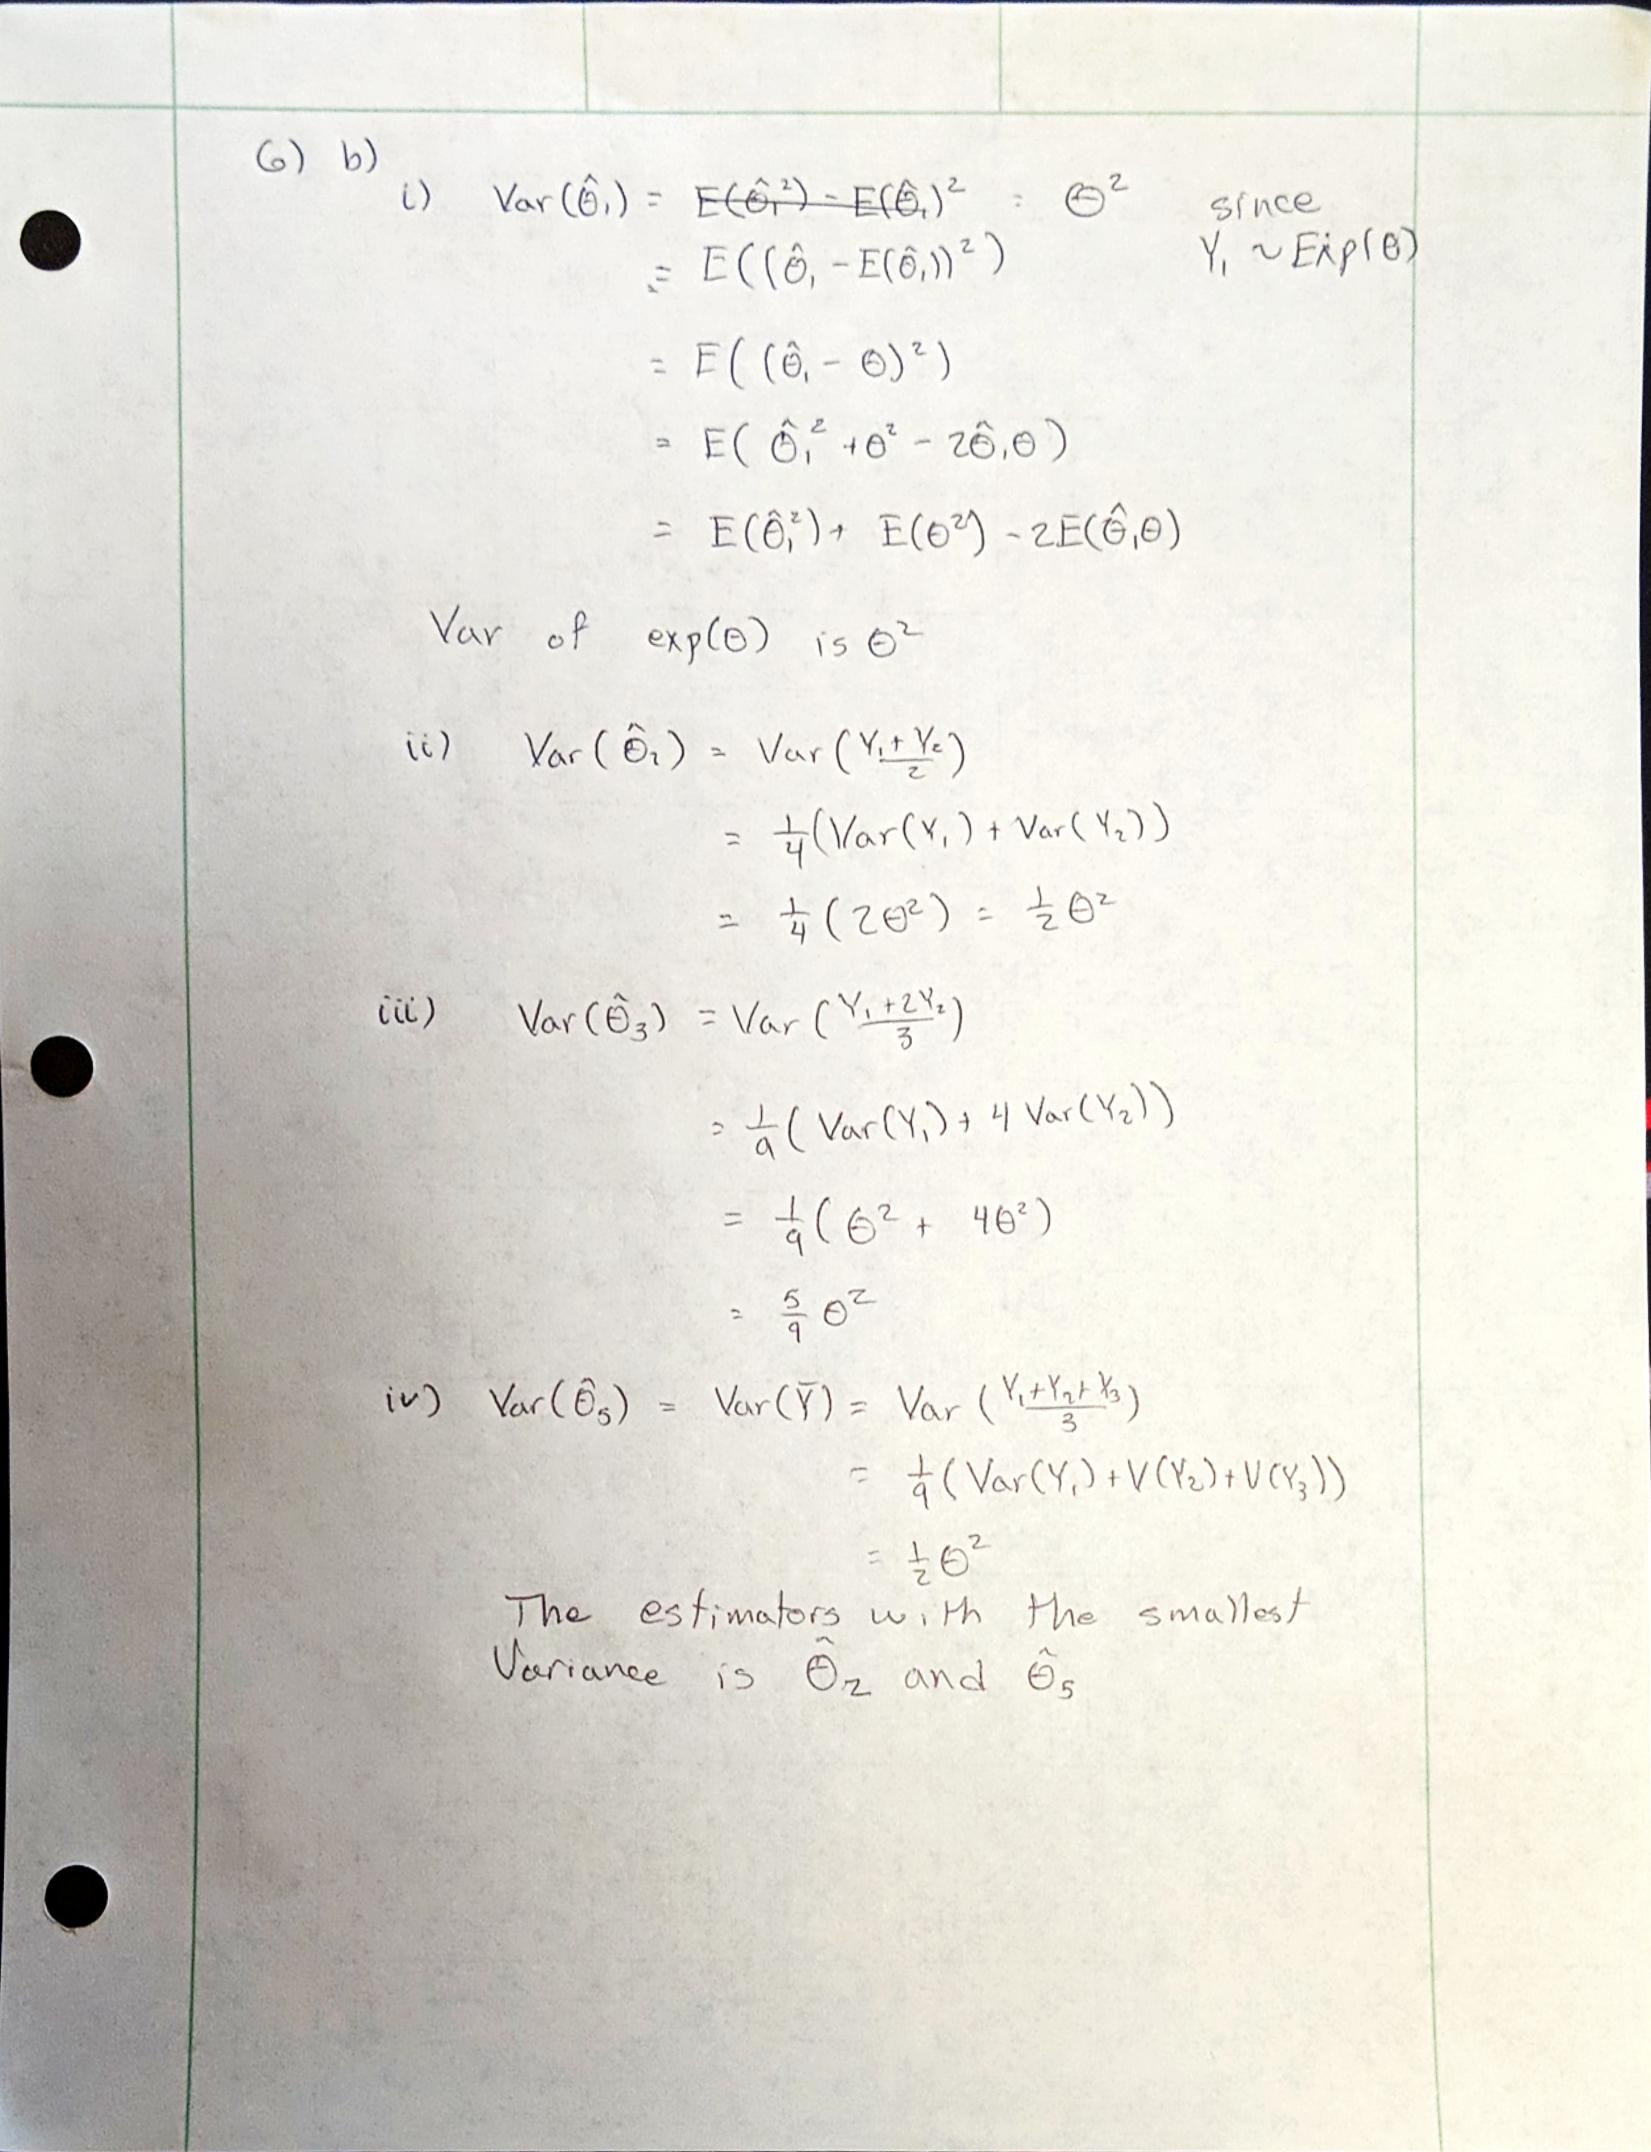 6) b)
i) Var(θ̂₁) = E(θ̂₁²) - E(θ̂₁)² = θ² since
= E((θ̂₁ - E(θ̂₁))²) Y₁ ~ Exp(θ)
= E((θ̂₁ - θ)²)
= E(θ̂₁² + θ² - 2θ̂₁θ)
= E(θ̂₁²) + E(θ²) - 2E(θ̂₁θ)
Var of exp(θ) is θ²
ii) Var(θ̂₂) = Var((Y₁ + Y₂)/2)
= 1/4(Var(Y₁) + Var(Y₂))
= 1/4(2θ²) = 1/2 θ²
iii) Var(θ̂₃) = Var((Y₁ + 2Y₂)/3)
= 1/9(Var(Y₁) + 4 Var(Y₂))
= 1/9(θ² + 4θ²)
= 5/9 θ²
iv) Var(θ̂₅) = Var(Ȳ) = Var((Y₁ + Y₂ + Y₃)/3)
= 1/9(Var(Y₁) + V(Y₂) + V(Y₃))
= 1/2 θ²
The estimators with the smallest
Variance is θ̂₂ and θ̂₅